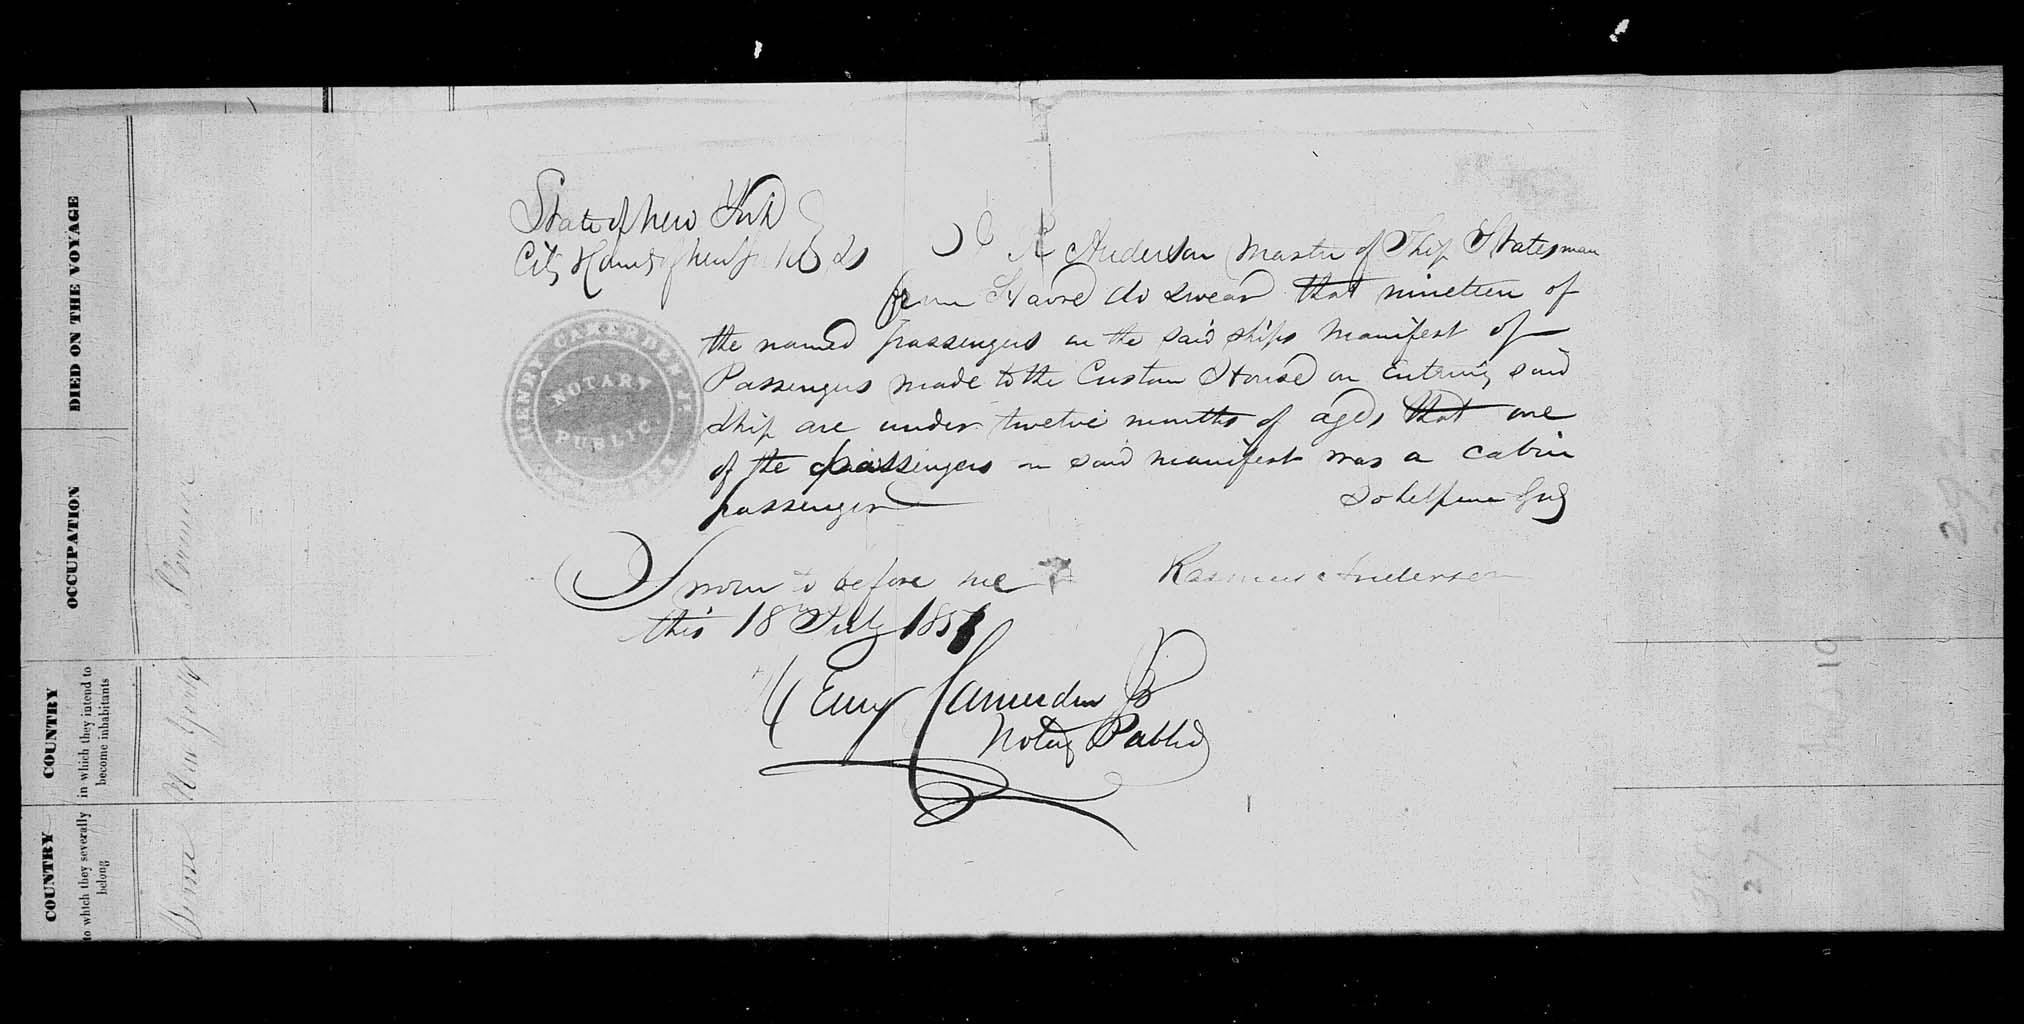 State of New York
City & County of New York ss
I R Anderson Master of Ship Statesman
from Havre do swear that nineteen of
the named passengers on the said ships Manifest of
Passengers made to the Custom House on Entring said
Ship are under twelve months of age, that one
of the passengers on said manifest was a cabin
passenger
So help me God
Sworn to before me
Rasmus Anderson
this 18 July 1851
Henry Camerden Jr
Notary Public
HENRY CAMERDEN Jr.
NOTARY
PUBLIC
DIED ON THE VOYAGE
OCCUPATION
COUNTRY
in which they intend to
become inhabitants
COUNTRY
to which they severally
belong
New York
272